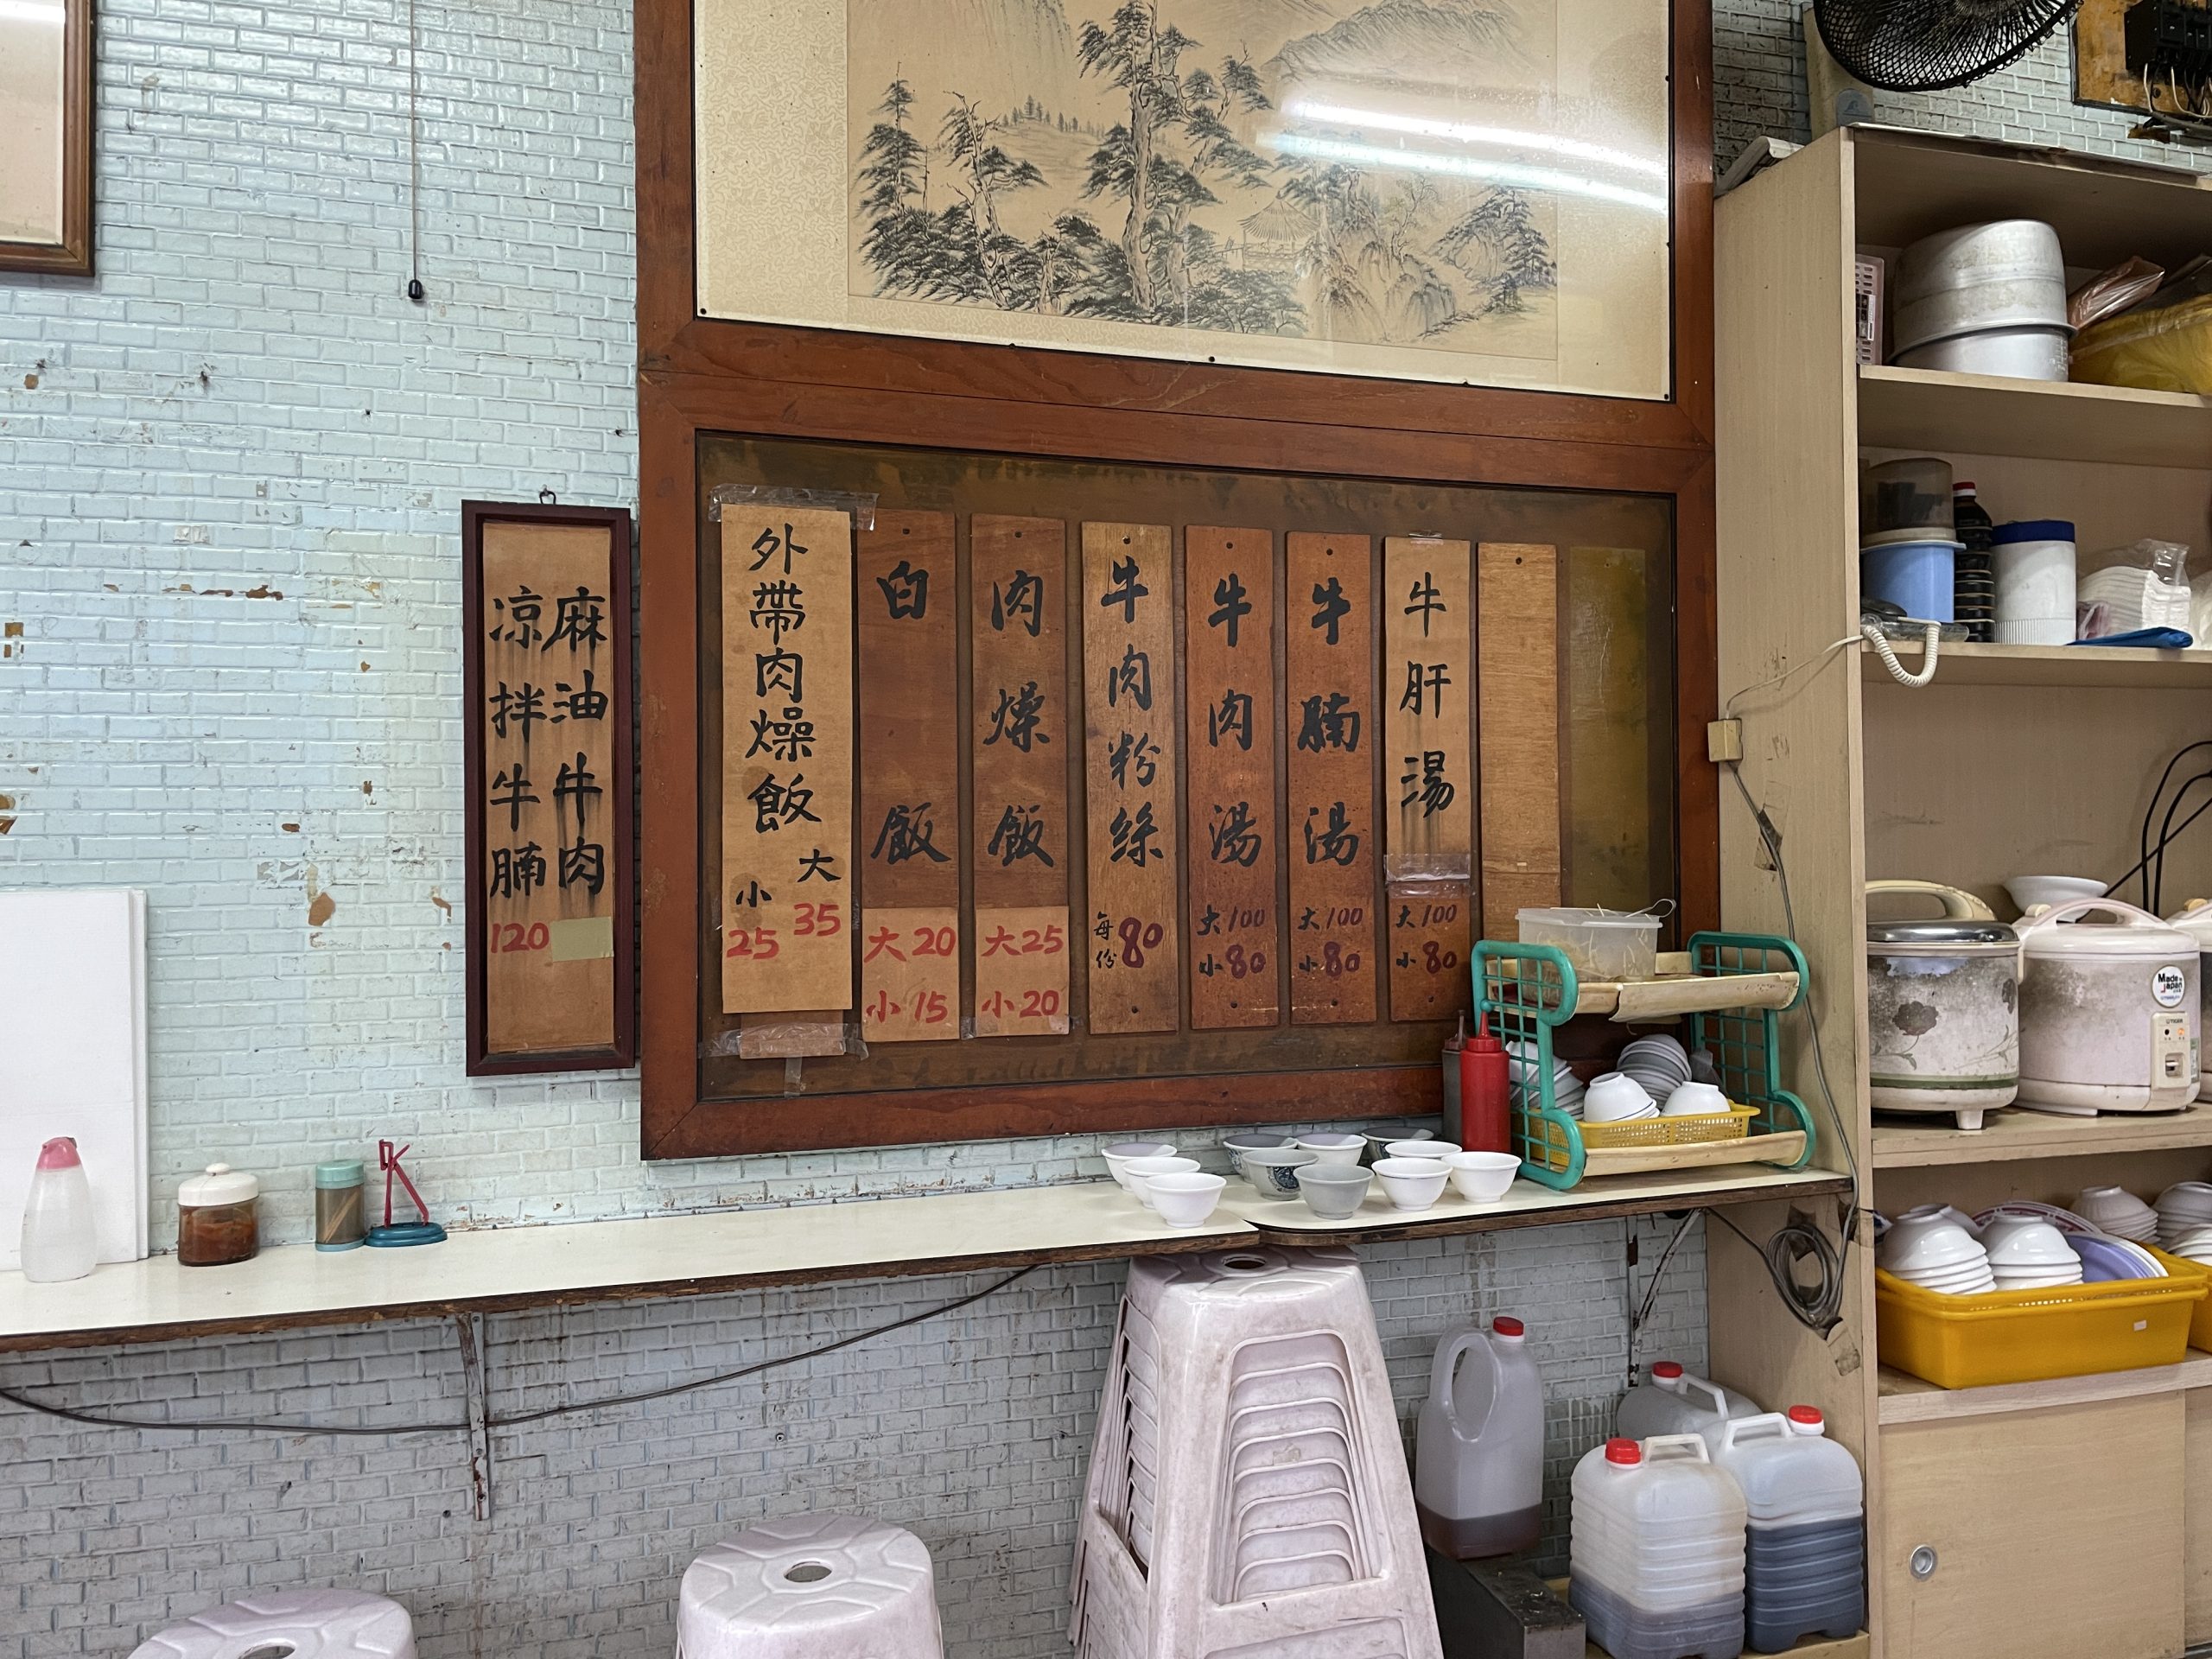 麻油牛肉
凉拌牛腩
120
外帶肉燥飯
大
35
小
25
白飯
大20
小15
肉燥飯
大25
小20
牛肉粉絲
每份80
牛肉湯
大100
小80
牛腩湯
大100
小80
牛肝湯
大100
小80
Made in Japan
TIGER